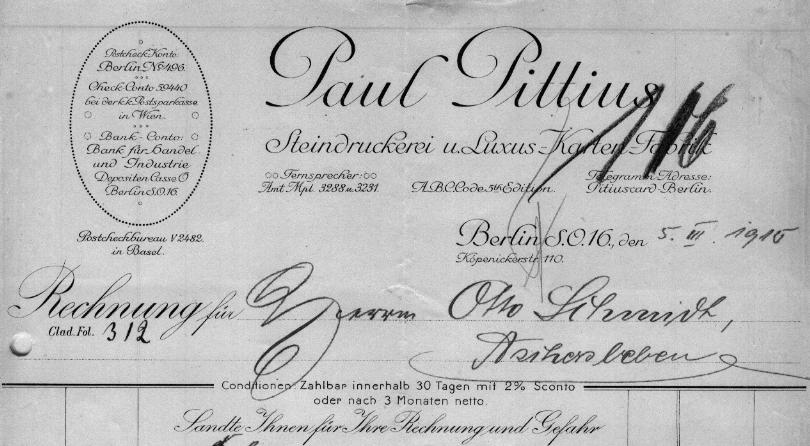 Postcheck-Konto:
Berlin No 496.
Check-Conto 59440
bei der k.k. Postsparkasse
in Wien.
Bank-Conto:
Bank für Handel
und Industrie
Depositen Casse O
Berlin S.O.16.
Postcheckbureau V 2482.
in Basel.
Paul Pittius
Steindruckerei u. Luxus-Karten-Fabrik
Fernsprecher:
Amt Mpl. 3288 u. 3231.
A.B.C. Code 5th Edition.
Telegramm-Adresse:
Pittiuscard-Berlin.
Berlin S.O.16., den 5. III. 1915
Köpenickerstr. 110.
Rechnung für Herrn Otto Schmidt,
Clad. Fol. 312
Aschersleben
Conditionen: Zahlbar innerhalb 30 Tagen mit 2% Sconto
oder nach 3 Monaten netto.
Sandte Ihnen für Ihre Rechnung und Gefahr